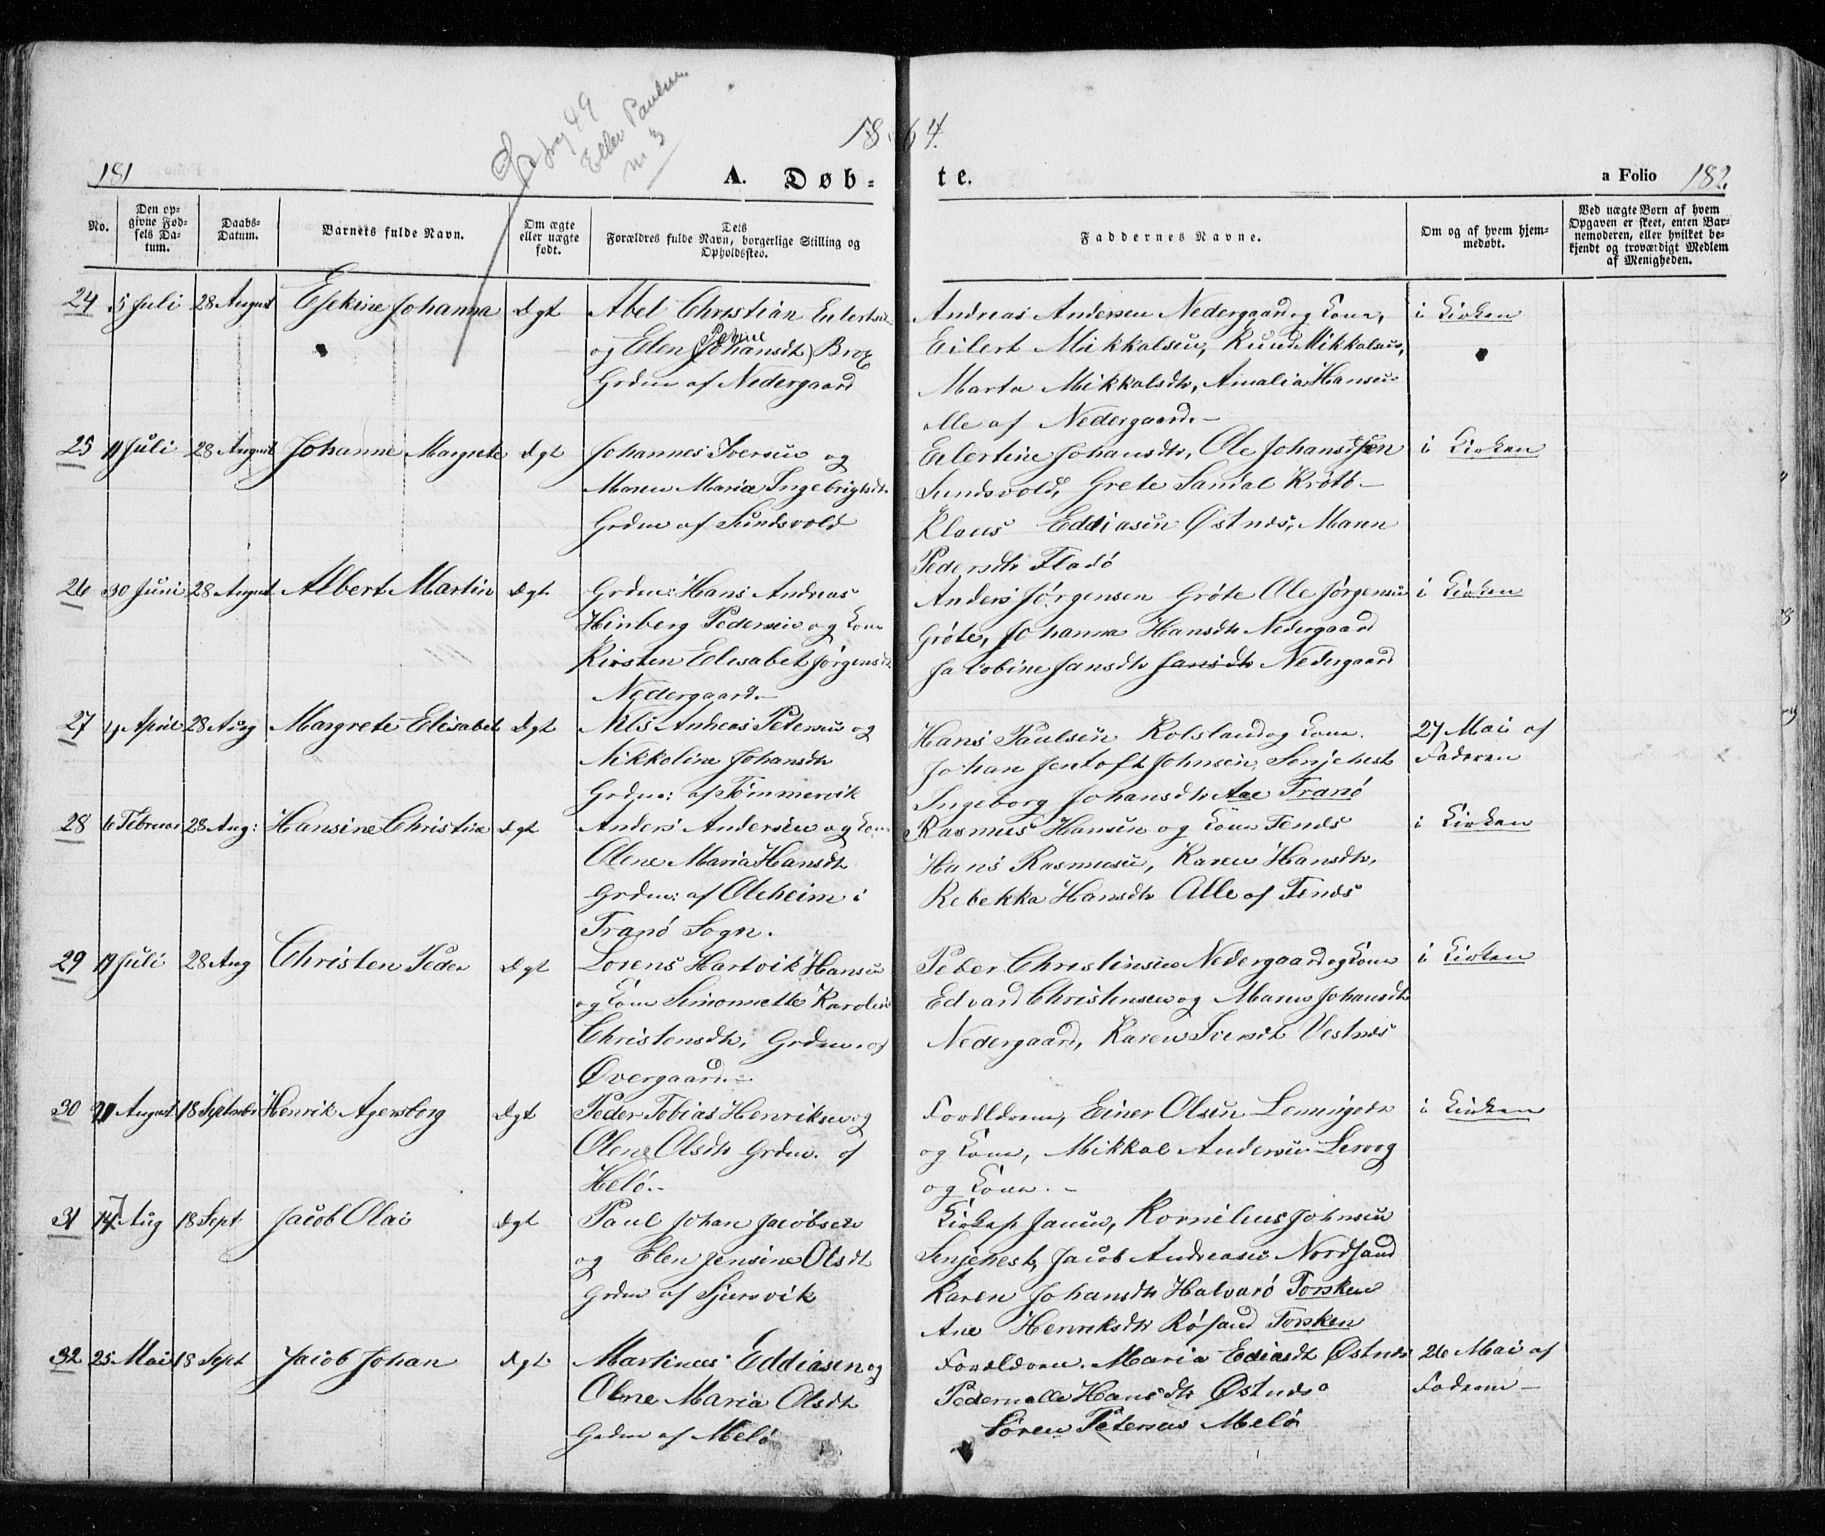 1864.
Eller Paulsen
181
A. Døb-
te.
a Folio 182
No.
Den op-
givne Fød-
sels Da-
tum.
Daabs-
Datum.
Barnets fulde Navn.
Om ægte
eller uægte
født.
Dets
Forældres fulde Navn, borgerlige Stilling og
Opholdssted.
Faddernes Navne.
Om og af hvem hjem-
medøbt.
Ved uægte Børn af hvem
Opgaven er skeet, enten Bar-
nemoderen, eller hvilket be-
kjendt og troværdigt Medlem
af Menigheden.
24 5 Juli 28 August Johanna Ægt Abel Christian Eilertsen
og Elen (Johansdtr) Brox
Grdm af Nedergaard
Andreas Andersen Nedergaard og Kone, i Kirken
Eilert Mikkalsen, Knud Mikkalsen,
Marta Mikkalsdtr, Amalia Hansen
alle af Nedergaard.-
25 11 Juli 28 August Johanne Margrete Ægt Johannes Iversen og
Maren Maria Ingebrigtsdtr
Grdm af Sundsvold
Eilertine Johansdtr, Ole Johansen i Kirken
Sundsvold, Grete
Klaus Eddiasen Østnes,
Pedersdtr Fladø
26 30 Juni 28 August Albert Martin Ægt Grdm: Hans Andreas
Hinberg Pedersen og Kone
Kirsten Elisabet Jørgensdtr
Nedergaard.-
Anders Jørgensen Grøte Ole Jørgensen i Kirken
Grøte, Johanna Hansdtr Nedergaard
Jakobine Jansdtr Jansdtr Nedergaard
27 4 April 28 Aug Margrete Elisabet Ægt Nils Andreas Petersen og
Nikkoline Johansdtr
Grdm: af Tømmervik
Hans Paulsen Rolsland og Kone. 27 Mai af
Johan Jentoft Johnsen, Senjehest Faderen
Ingeborg Johansdtr Aae Tranø
28 6 Februar 28 Aug: Hansine Christine Ægt Anders Andersen og Kone
Olene Maria Hansdtr
Grdm: af Oleheim i
Tranø Sogn.
Rasmus Hansen og Kone Fenes i Kirken
Hans Rasmusen, Karen Hansdtr,
Rebekka Hansdtr Alle af Fenes
29 19 Juli 28 Aug Christen Peder Ægt Lorens Hartvik Hansen
og Kone Simonette Karoline
Christensdtr, Grdm. af
Øvergaard.-
Peder Christensen Nedergaard og Kone i Kirken
Edvard Christensen og Maren Johansdtr
Nedergaard, Karen Iversdt Vestnes
30 21 August 18 September Henrik Agersborg Ægt Peder Tobias Henriksen og
Olene Olsdtr Grdm. af
Helø.-
Forældrene, Einer Olsen i Kirken
og Kone, Mikkal Andersen Lervog
og Kone.-
31 17 Aug 18 Sept Jacob Olai Ægt Paul Johan Jacobsen
og Elen Jensine Olsdt
Grdm af Sjursvik
Kirkes: Kornelius Johnsen
Senjehest, Jacob Andreasen Nordsand
Karen Johansdtr Halvarø Torsken
Ane Henriksdtr Røsand Torsken
32 25 Mai 18 Sept Jacob Johan Ægt Martines Eddiasen og
Olene Maria Olsdtr
Grdm af Melø
Forældrene. Maria Ediasdt Østnes 26 Mai af
Pedernelle Hansdtr Østnes Faderen -
Søren Petersen Melø